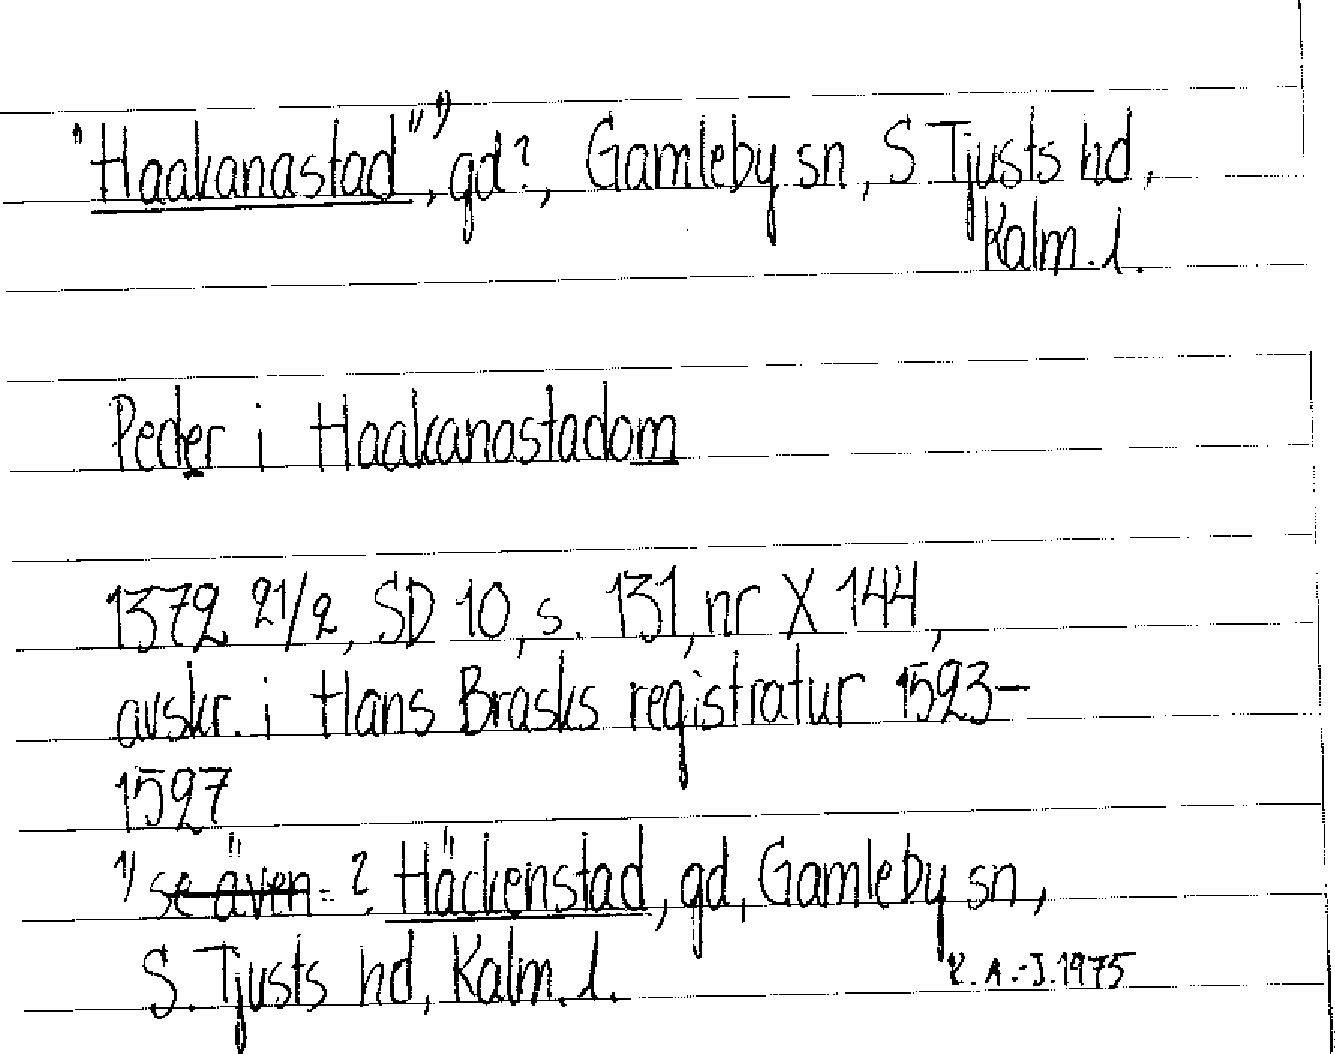 "Haakanastad" 1), gd?, Gamleby sn, S Tjusts hd,
Kalm. l.
Peder i Haakanastadom
1372 21/2, SD 10, s. 131, nr X 144,
avskr. i Hans Brasks registratur 1523–
1527
1) se även = ? Häckenstad, gd, Gamleby sn,
S. Tjusts hd, Kalm. l.
K. A.-J. 1975